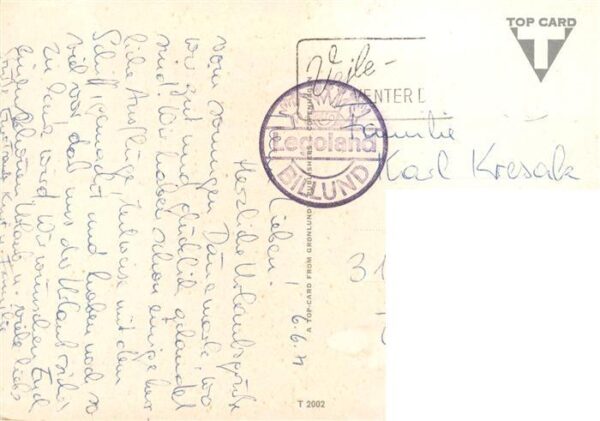 TOP CARD
T
Vejle-
VENTER
Legoland
BILLUND
Familie
Karl Kresak
31
A TOP-CARD FROM GRØNLUND
T 2002
6.6.
Lieben!
Herzliche Urlaubsgrüße
vom sonnigen Dänemark, wo
wir gut und glücklich gelandet
sind! Wir haben schon einige herr
liche Ausflüge, teilweise mit dem
Schiff gemacht und haben noch so
viel vor, daß uns der Urlaub sicher
zu kurz wird. Wir wünschen Euch
einen schönen Urlaub u. viele liebe